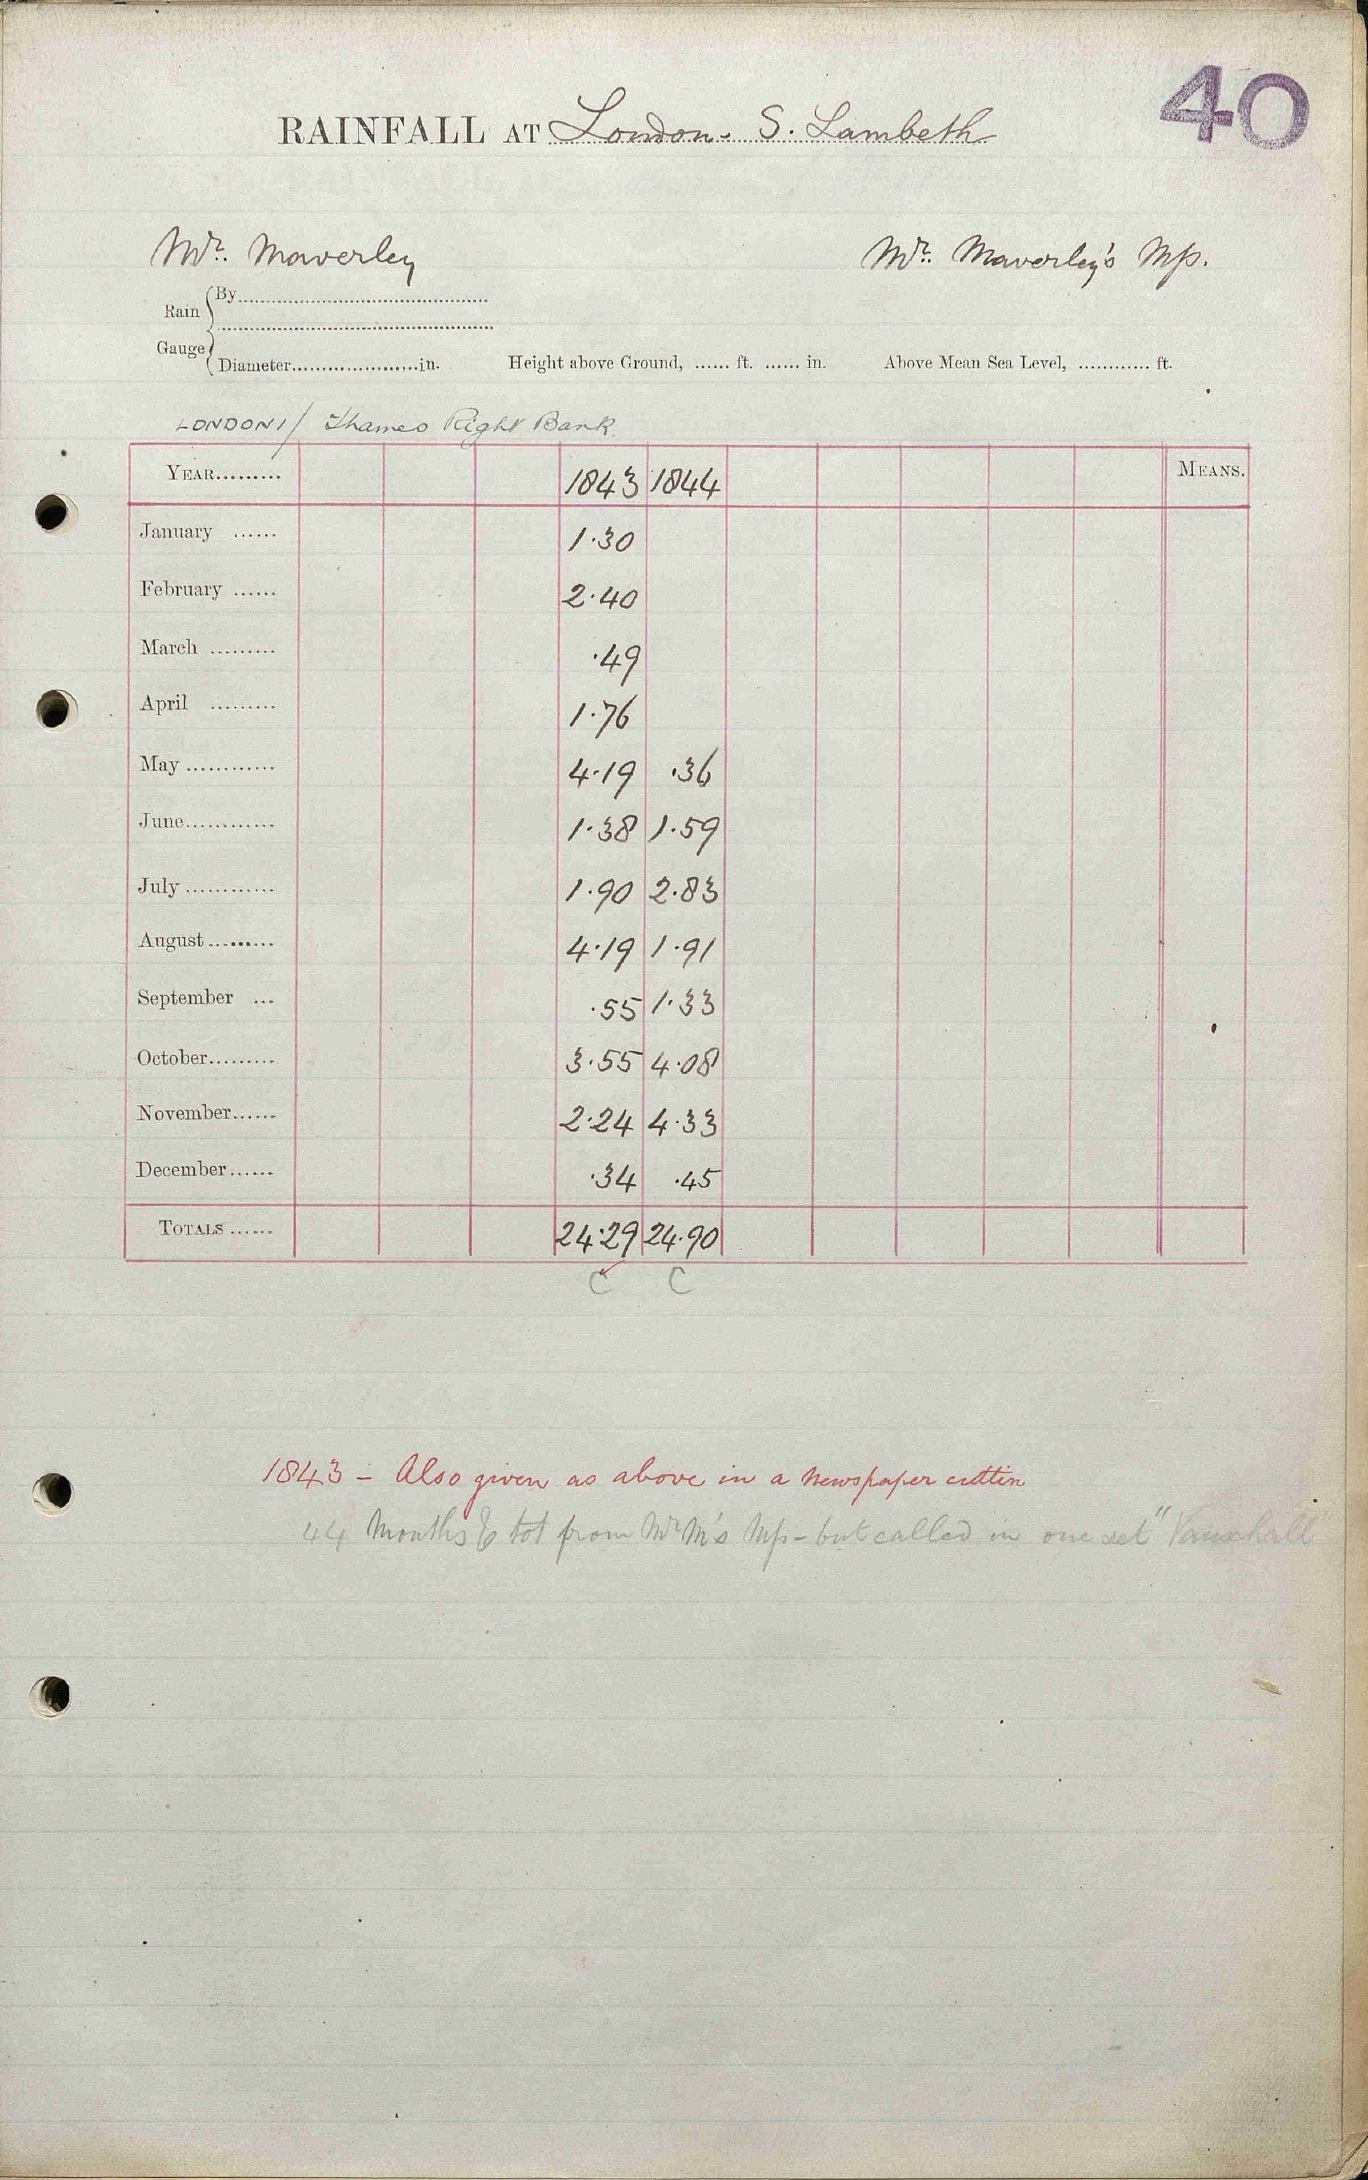 40
RAINFALL AT London - S. Lambeth
Mr. Maverley
Mr. Maverley's Mss.
Rain Gauge
By
Diameter in. Height above Ground, ft. in. Above Mean Sea Level, ft.
LONDON 1/ Thames Right Bank
YEAR 1843 1844 MEANS.
January 1.30
February 2.40
March .49
April 1.76
May 4.19 .36
June 1.38 1.59
July 1.90 2.83
August 4.19 1.91
September .55 1.33
October 3.55 4.08
November 2.24 4.33
December .34 .45
TOTALS 24.29 24.90
C C
1843 - Also given as above in a newspaper cuttin
44 Months & tot from Mr M's Mss - but called in one set "Vauxhall"